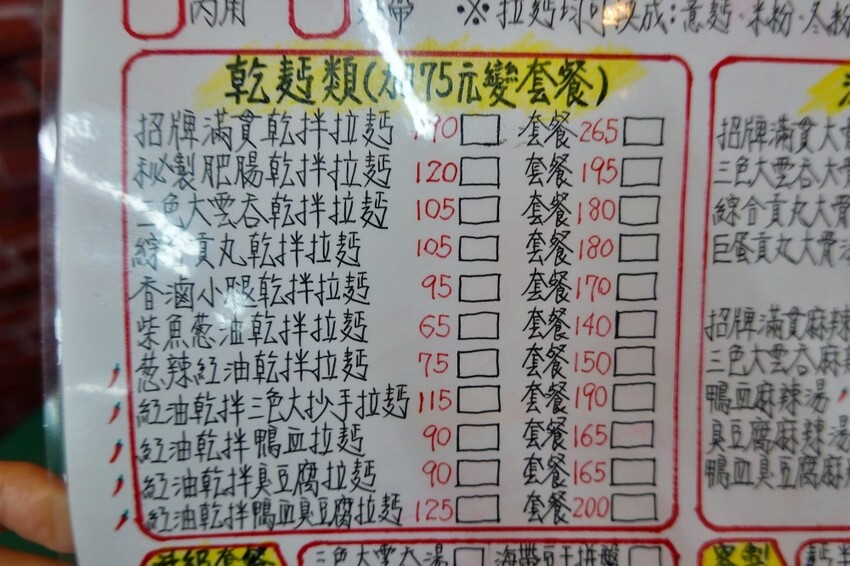 肉角
※拉麵均可換成:意麵.米粉.冬粉
乾麵類(加75元變套餐)
招牌滿貫乾拌拉麵 190 套餐265
秘製肥腸乾拌拉麵 120 套餐195
三色大雲吞乾拌拉麵 105 套餐180
綜合貢丸乾拌拉麵 105 套餐180
香滷小腿乾拌拉麵 95 套餐170
柴魚蔥油乾拌拉麵 65 套餐140
蔥辣紅油乾拌拉麵 75 套餐150
紅油乾拌三色大抄手拉麵 115 套餐190
紅油乾拌鴨血拉麵 90 套餐165
紅油乾拌臭豆腐拉麵 90 套餐165
紅油乾拌鴨血臭豆腐拉麵 125 套餐200
招牌滿貫大骨
三色大雲吞大骨
綜合貢丸大骨
巨蛋貢丸大骨湯
招牌滿貫麻辣
三色大雲吞麻辣
鴨血麻辣湯
臭豆腐麻辣湯
鴨血臭豆腐麻
升級套餐
三色大雲吞湯
海帶豆干拼盤
客製